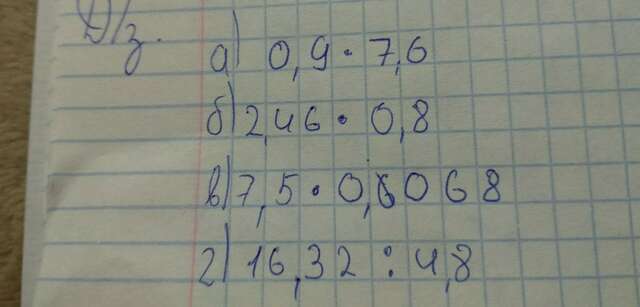 Д/з.
а) 0,9 · 7,6
б) 2,46 · 0,8
в) 7,5 · 0,6068
г) 16,32 : 4,8